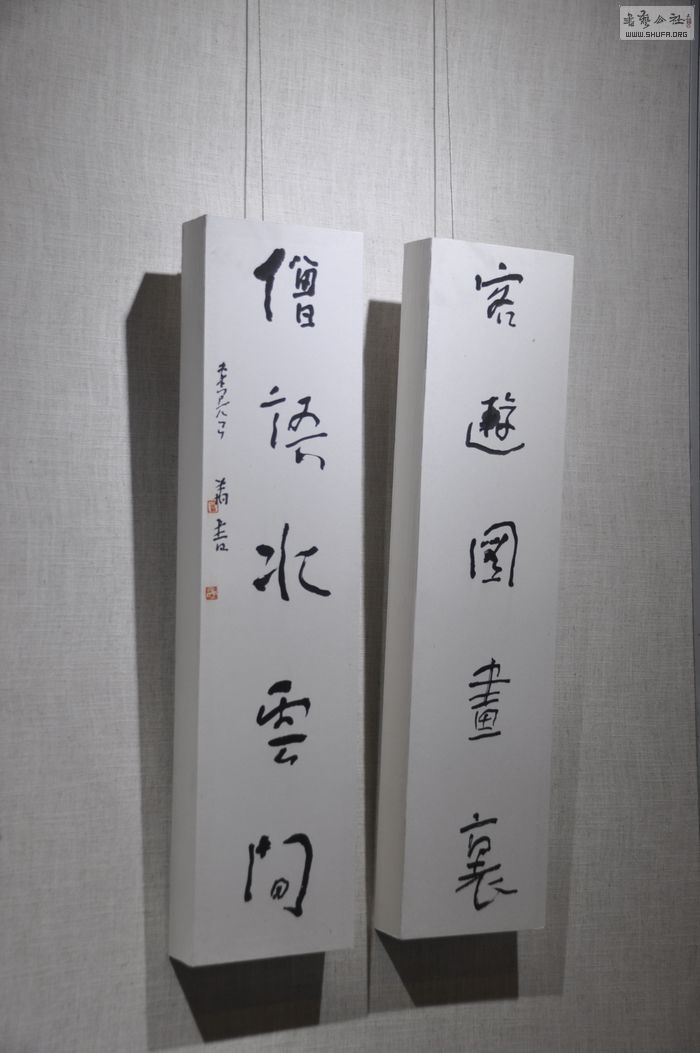 客遊圖畫裏
僧語水雲間
書藝公社
WWW.SHUFA.ORG